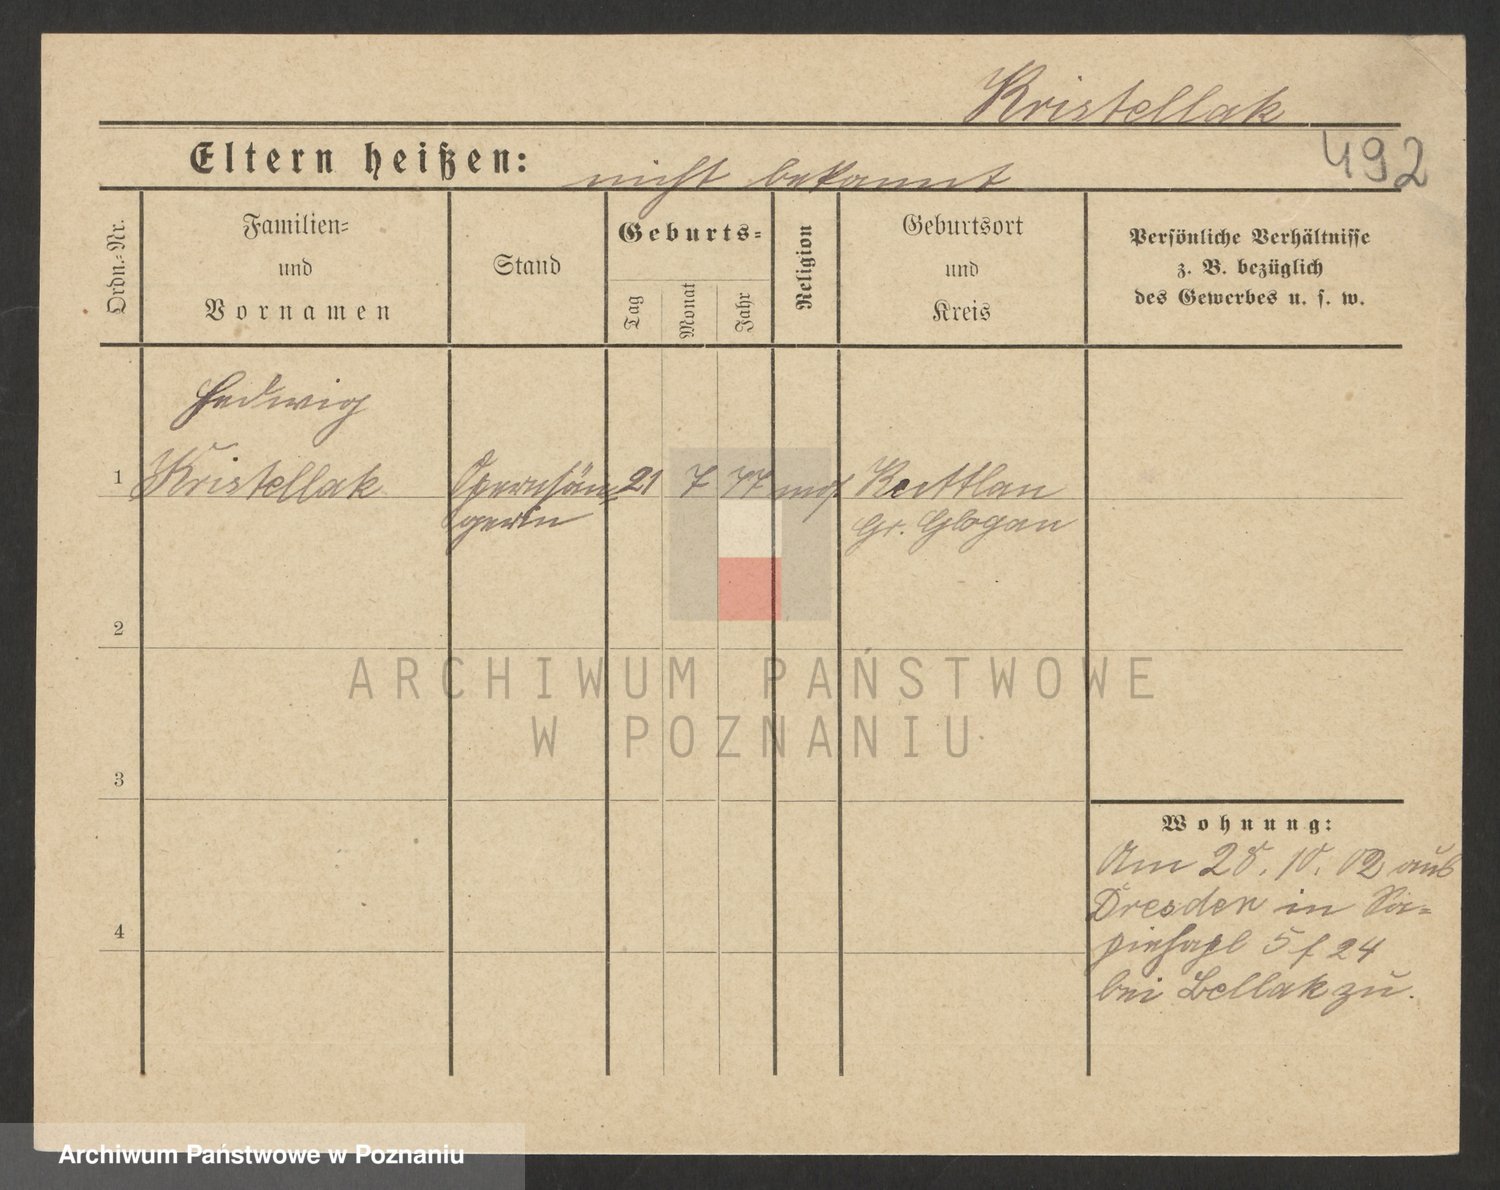 Kristellak
492
Eltern heißen: nicht bekannt
Ordn.-Nr.
Familien-
und
Vornamen
Stand
Geburts-
Tag
Monat
Jahr
Religion
Geburtsort
und
Kreis
Persönliche Verhältnisse
z. B. bezüglich
des Gewerbes u. s. w.
Hedwig
1 Kristellak Opernsän- 21 7 77
gerin Gr. Glogau
2
3
4
Wohnung:
Am 28. 10. 02 aus
Dresden in Sa-
piehapl 5 f 24
bei Bellak zu.
ARCHIWUM PAŃSTWOWE
W POZNANIU
Archiwum Państwowe w Poznaniu